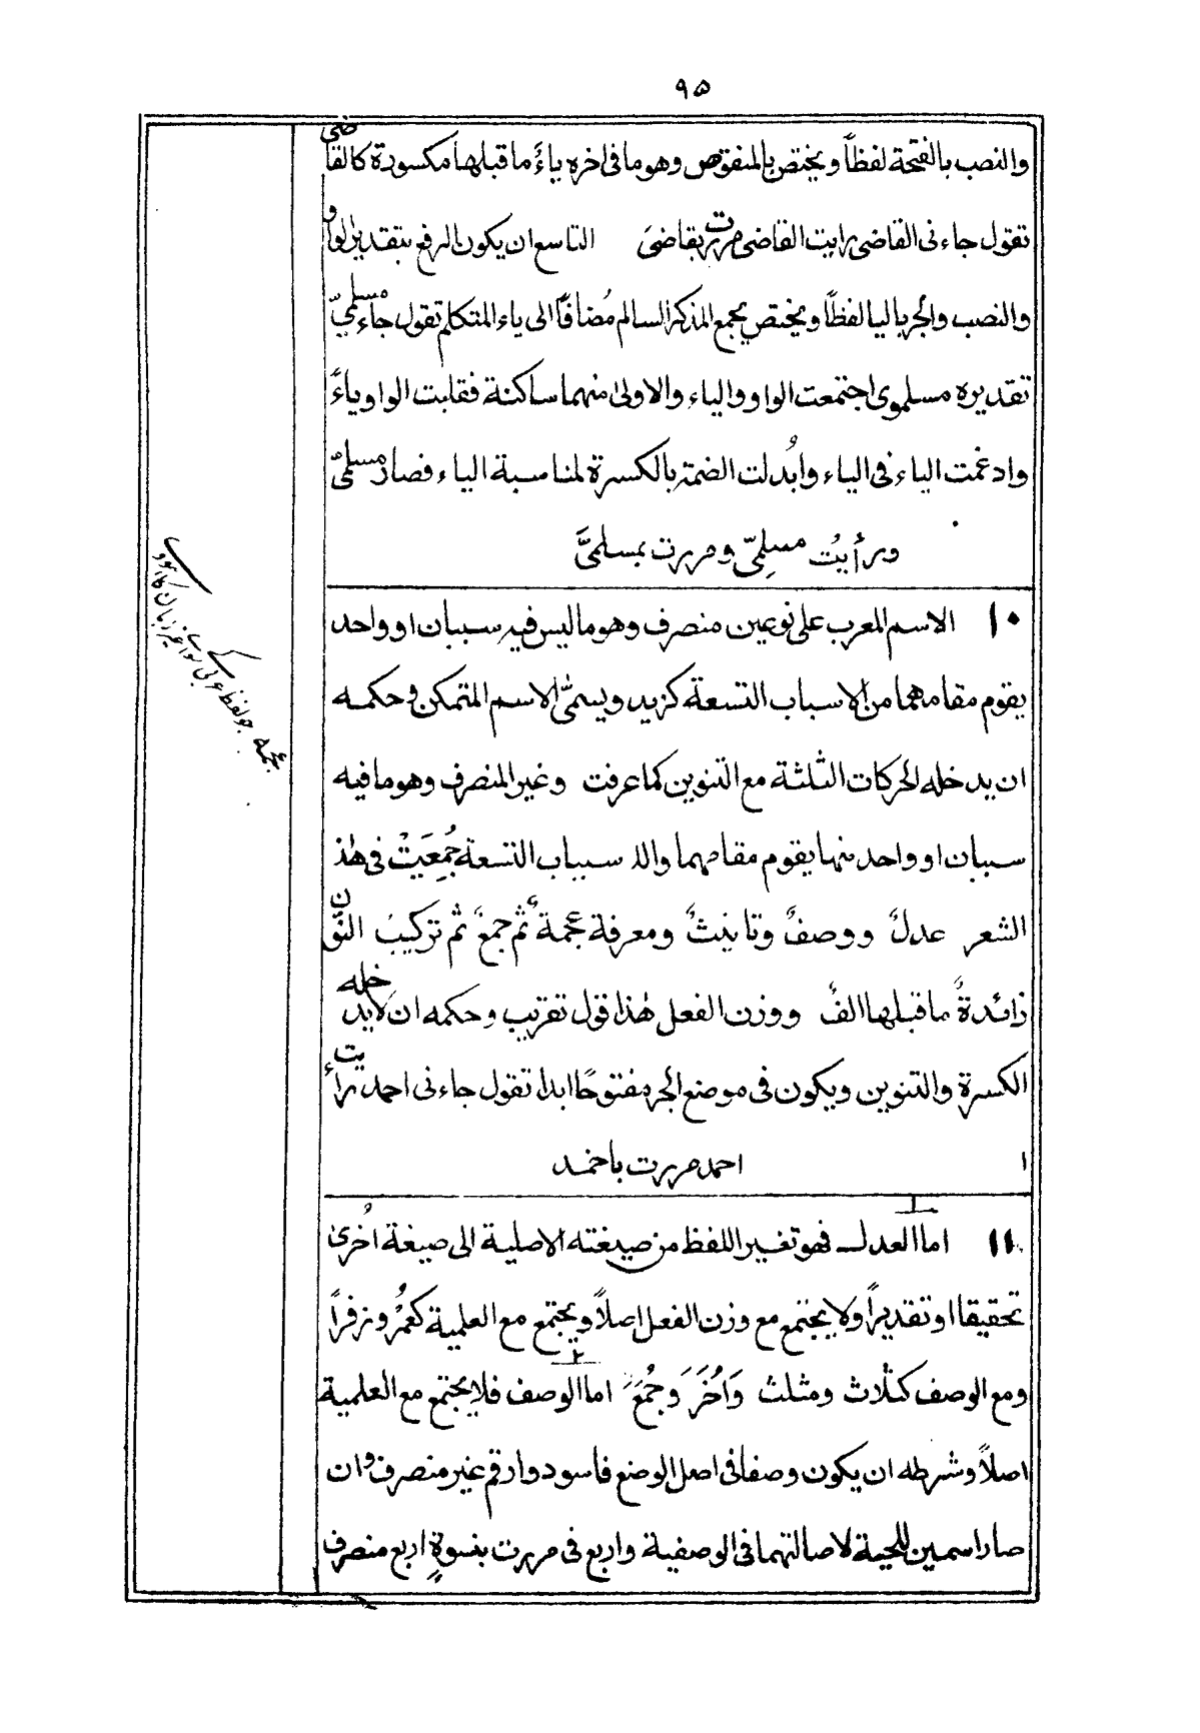 ۹۵
والنصب بالفتحة لفظاً ويختص بالمنقوص وهو ما فی اخره ياءً ما قبلها مكسورة كالقاضی
تقول جاءنی القاضی رايت القاضی مررت بقاضیَ التاسع ان يكون الرفع بتقدير الواو
والنصب والجر باليا لفظاً ويختص بجمع المذكر السالم مُضافاً الی ياء المتكلم تقول جاء مسلمیّ
تقديره مسلموی اجتمعت الواو والياء والاولیٰ منهما ساكنة فقلبت الواو ياءً
وادغمت الياء فی الياء وابُدلت الضمة بالكسرة لمناسبة الياء فصار مسلمیّ
ورأيتُ مسلِمیّ ومررت بمسلمیَّ
۱۰ الاسم المعرب علی نوعين منصرف وهو ما ليس فيه سببان او واحد
يقوم مقامهما من الاسباب التسعة كزيد ويسمّٰی الاسم المتمكن وحكمه
ان يدخله الحركات الثلثة مع التنوين كما عرفت وغير المنصرف وهو ما فيه
سببان او واحد منها يقوم مقامهما والا سبباب التسعة جُمِعَتْ فی هٰذ
الشعر عدلٌ ووصفٌ وتانيثٌ ومعرفة عجمةٌ ثم جمعٌ ثم تركيبُ النّون
زائدةً ما قبلها الفٌ ووزن الفعل هٰذا قول تقريب وحكمه ان لايدخله
الكسرة والتنوين ويكون فی موضع الجر مفتوحًا ابدا تقول جاءنی احمد رأيت
ا احمد مررت باحمد
۱۱ اما العدل فهو تغيير اللفظ من صيغته الاصلية الی صيغة اُخریٰ
تحقيقا او تقديراً ولا يجتمع مع وزن الفعل اصلاً ويجتمع مع العلمية كعُمرُ وزفراً
ومع الوصف كثلاث ومثلث وَاُخَرَ وَجُمَعَ اما الوصف فلا يجتمع مع العلمية
اصلاً وشرطه ان يكون وصفا فی اصل الوضع فاسود وارقم غير منصرف وان
صارا سمين للحية لاصالتهما فی الوصفية واربع فی مررت بنسوةٍ اربع منصرف
عجمہ جو لفظ عربی کے سوائے غیر زبان کا ہووے